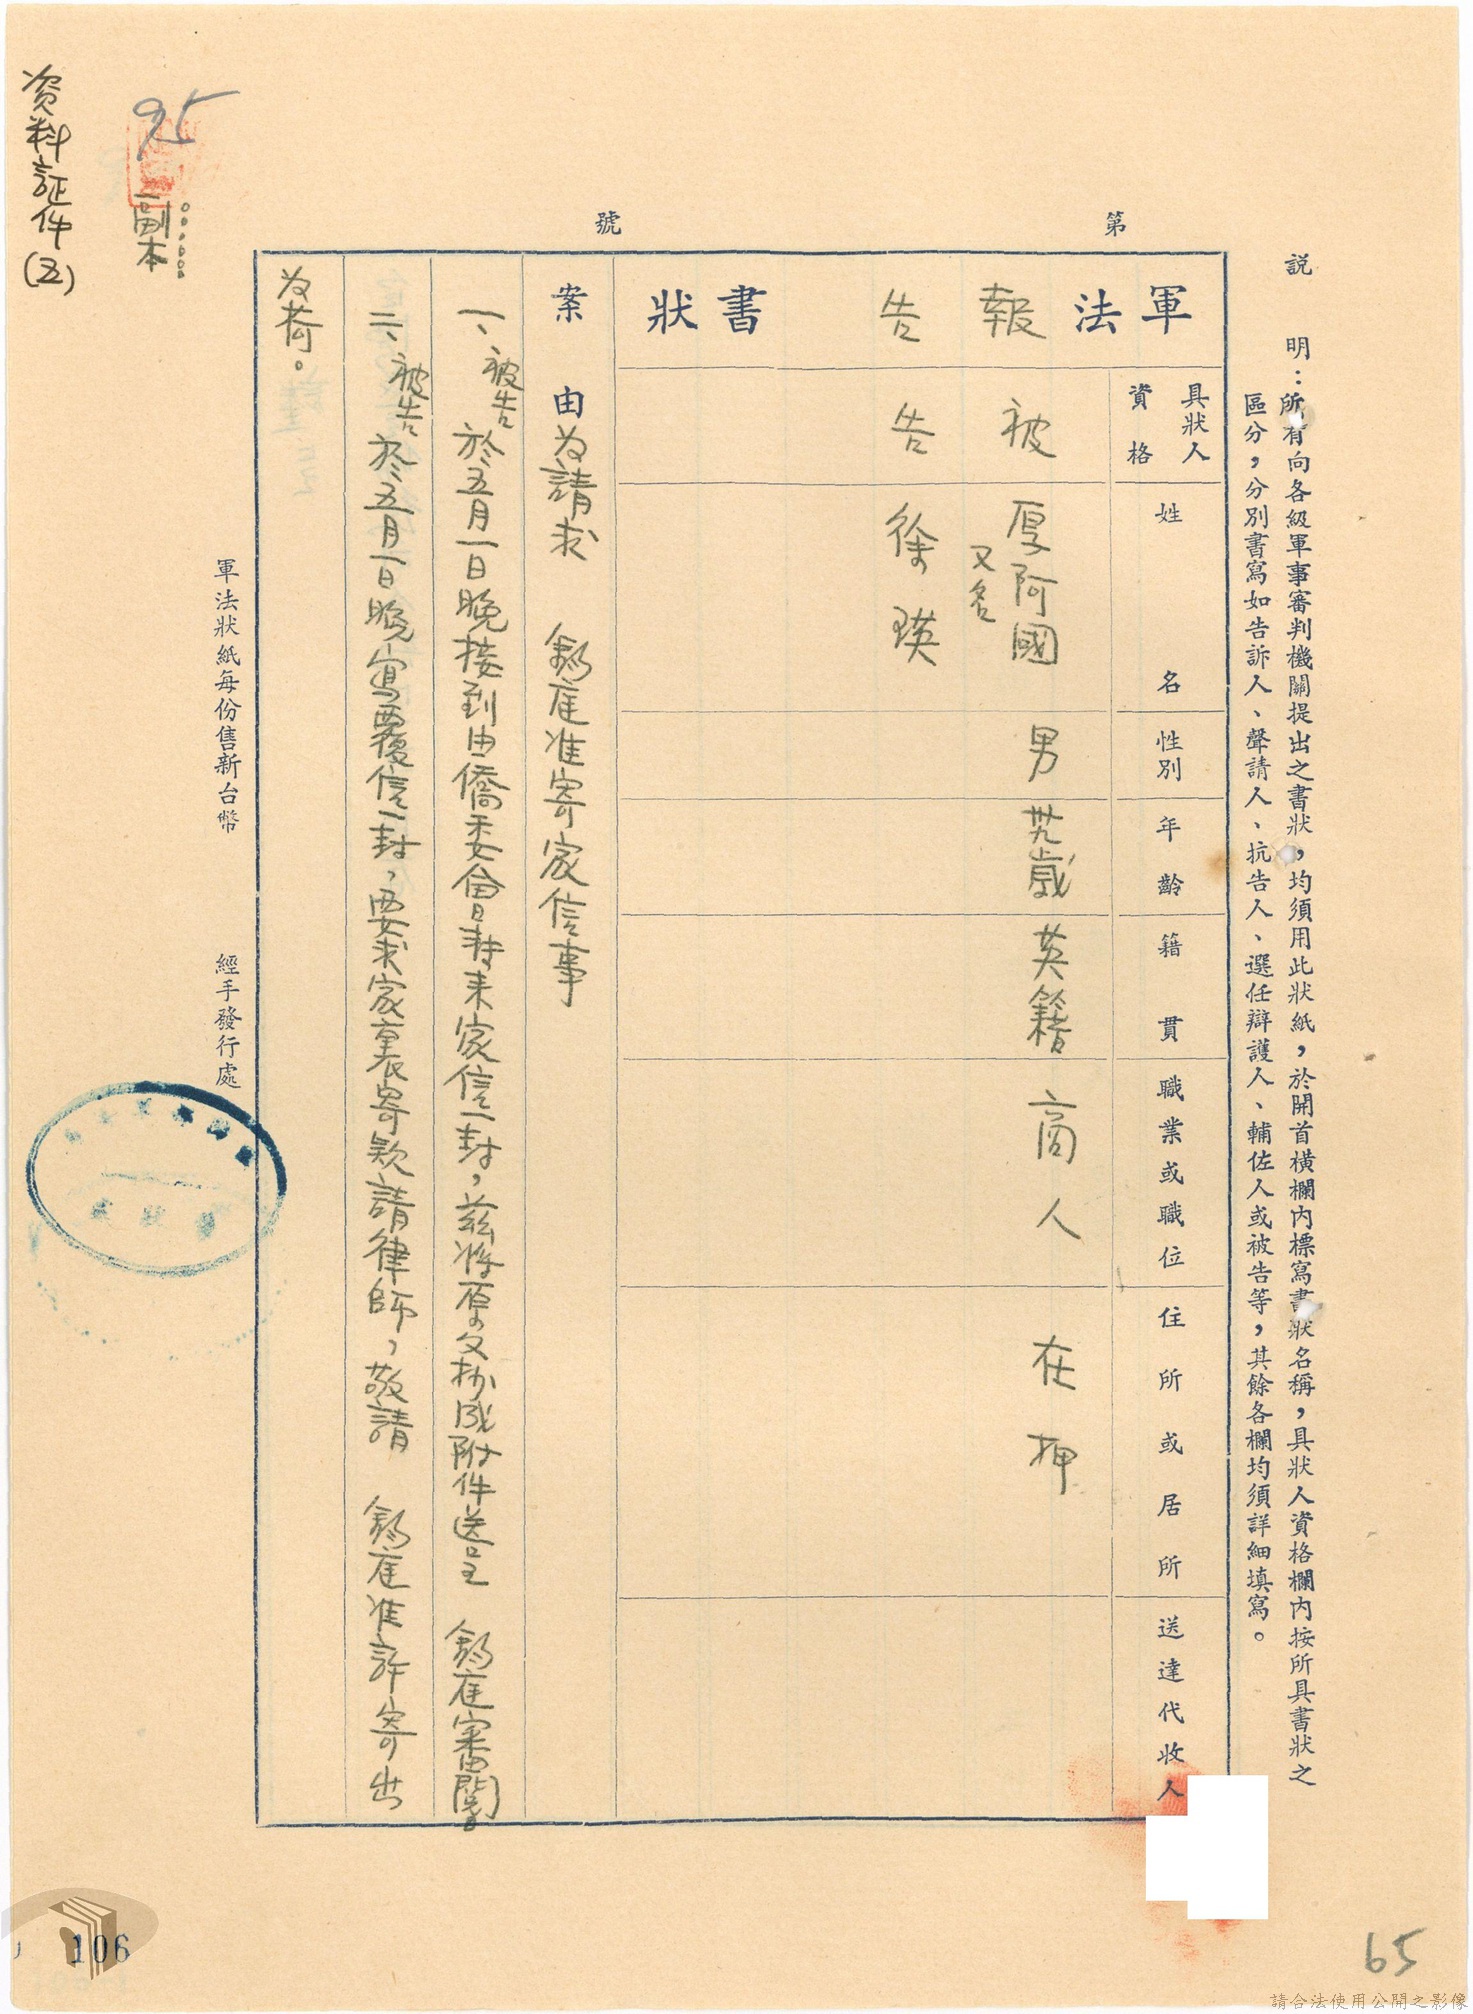 說　明：所有向各級軍事審判機關提出之書狀，均須用此狀紙，於開首橫欄內標寫書狀名稱，具狀人資格欄內按所具書狀之
區分，分別書寫如告訴人、聲請人、抗告人、選任辯護人、輔佐人或被告等，其餘各欄均須詳細填寫。
第　號
軍法報告書狀
具狀人
資格
姓名
性別
年齡
籍貫
職業或職位
住所或居所
送達代收人
被告
厚阿國
又名
徐瑛
男
卅九歲
英籍
商人
在押
案由為請求　鈞庭准寄家信事
一、被告於五月一日晚接到由僑委會轉來家信一封，茲將原文抄成附件送呈　鈞庭審閱
二、被告於五月一日晚寫覆信一封，要求家裏寄款請律師，敬請　鈞庭准許寄出
為荷。
軍法狀紙每份售新台幣　經手發行處
95
副本
資料証件(五)
106
65
請合法使用公開之影像